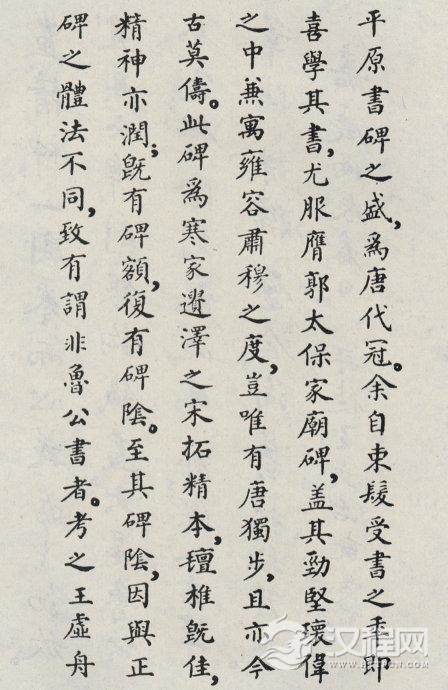 平原書碑之盛，爲唐代冠。余自束髮受書之秊即
喜學其書，尤服膺郭太保家廟碑，盖其勁堅瓌偉
之中兼寓雍容肅穆之度，豈唯有唐獨步，且亦今
古莫儔。此碑爲寒家遺澤之宋拓精本，氊椎既佳，
精神亦潤；既有碑額，復有碑陰。至其碑陰，因與正
碑之體法不同，致有謂非魯公書者。考之王虛舟
汉程网